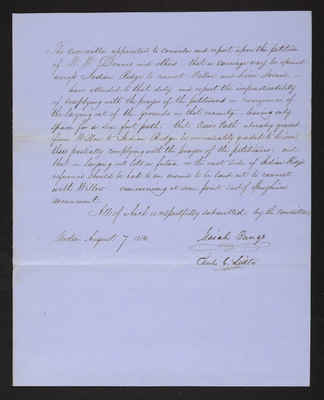 The Committee appointed to consider and report upon the petition
of W. W. and others, that a carriage way be opened
Indian Ridge to connect Willow and Avenues,
have attended to that duty, and report the impracticability
of complying with the prayer of the petitioners in consequence of
the laying out of the grounds in that vicinity, leaving only
space for a six foot path, that path already opened
from Willow to Indian Ridge
thus partially complying with the prayer of the petitioners, and
that in laying out lots in future on the west side of Indian Ridge
reference should be had to an avenue to be laid out to connect
with Willow commencing at some point East of
monument.
All of which is respectfully submitted by the Committee
August 7
Isaiah Bangs
Charles C. Little